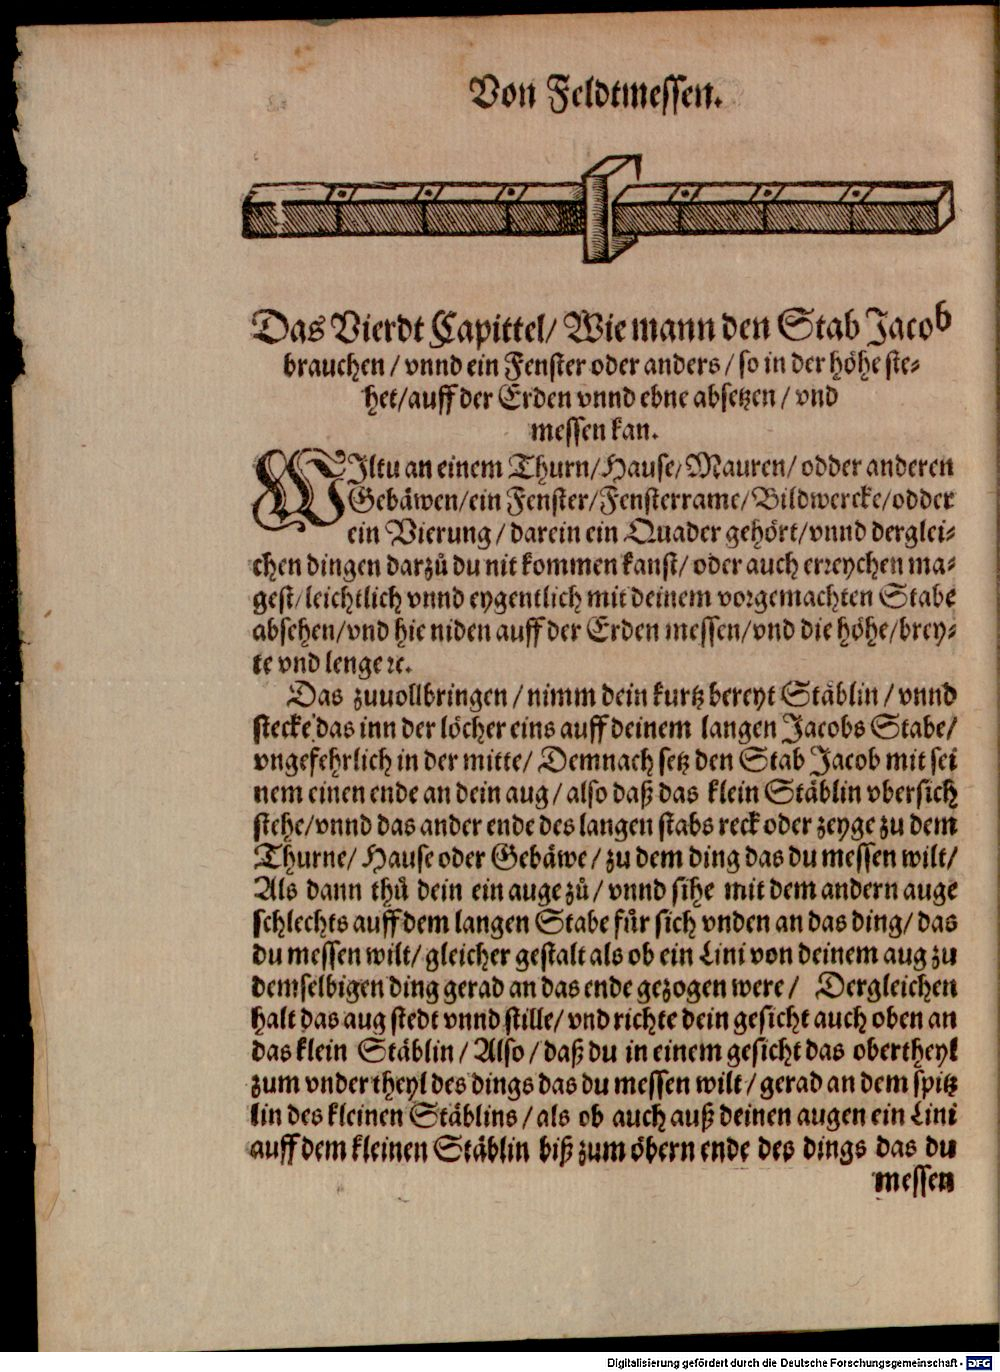 Von Feldtmessen.
Das Vierdt Capittel/ Wie mann den Stab Jacob
brauchen/ vnnd ein Fenster oder anders/ so in der höhe ste-
het/ auff der Erden vnnd ebne absetzen/ vnd
messen kan.
WIltu an einem Thurn/ Hause/ Mauren/ odder anderen
Gebäwen/ ein Fenster/ Fensterrame/ Bildwercke/ odder
ein Vierung/ darein ein Quader gehört/ vnnd derglei-
chen dingen darzů du nit kommen kanst/ oder auch erreychen ma-
gest/ leichtlich vnnd eygentlich mit deinem vorgemachten Stabe
absehen/ vnd hie niden auff der Erden messen/ vnd die höhe/ brey-
te vnd lenge ꝛc.
Das zuuollbringen/ nimm dein kurtz bereyt Stäblin/ vnnd
stecke das inn der löcher eins auff deinem langen Jacobs Stabe/
vngefehrlich in der mitte/ Demnach setz den Stab Jacob mit sei
nem einen ende an dein aug/ also daß das klein Stäblin vbersich
stehe/ vnnd das ander ende des langen stabs reck oder zeyge zu dem
Thurne/ Hause oder Gebäwe/ zu dem ding das du messen wilt/
Als dann thů dein ein auge zů/ vnnd sihe mit dem andern auge
schlechts auff dem langen Stabe für sich vnden an das ding/ das
du messen wilt/ gleicher gestalt als ob ein Lini von deinem aug zu
demselbigen ding gerad an das ende gezogen were/ Dergleichen
halt das aug stedt vnnd stille/ vnd richte dein gesicht auch oben an
das klein Stäblin/ Also/ daß du in einem gesicht das obertheyl
zum vndertheyl des dings das du messen wilt/ gerad an dem spitz
lin des kleinen Stäblins/ als ob auch auß deinen augen ein Lini
auff dem kleinen Stäblin biß zum öbern ende des dings das du
messen
Digitalisierung gefördert durch die Deutsche Forschungsgemeinschaft - DFG